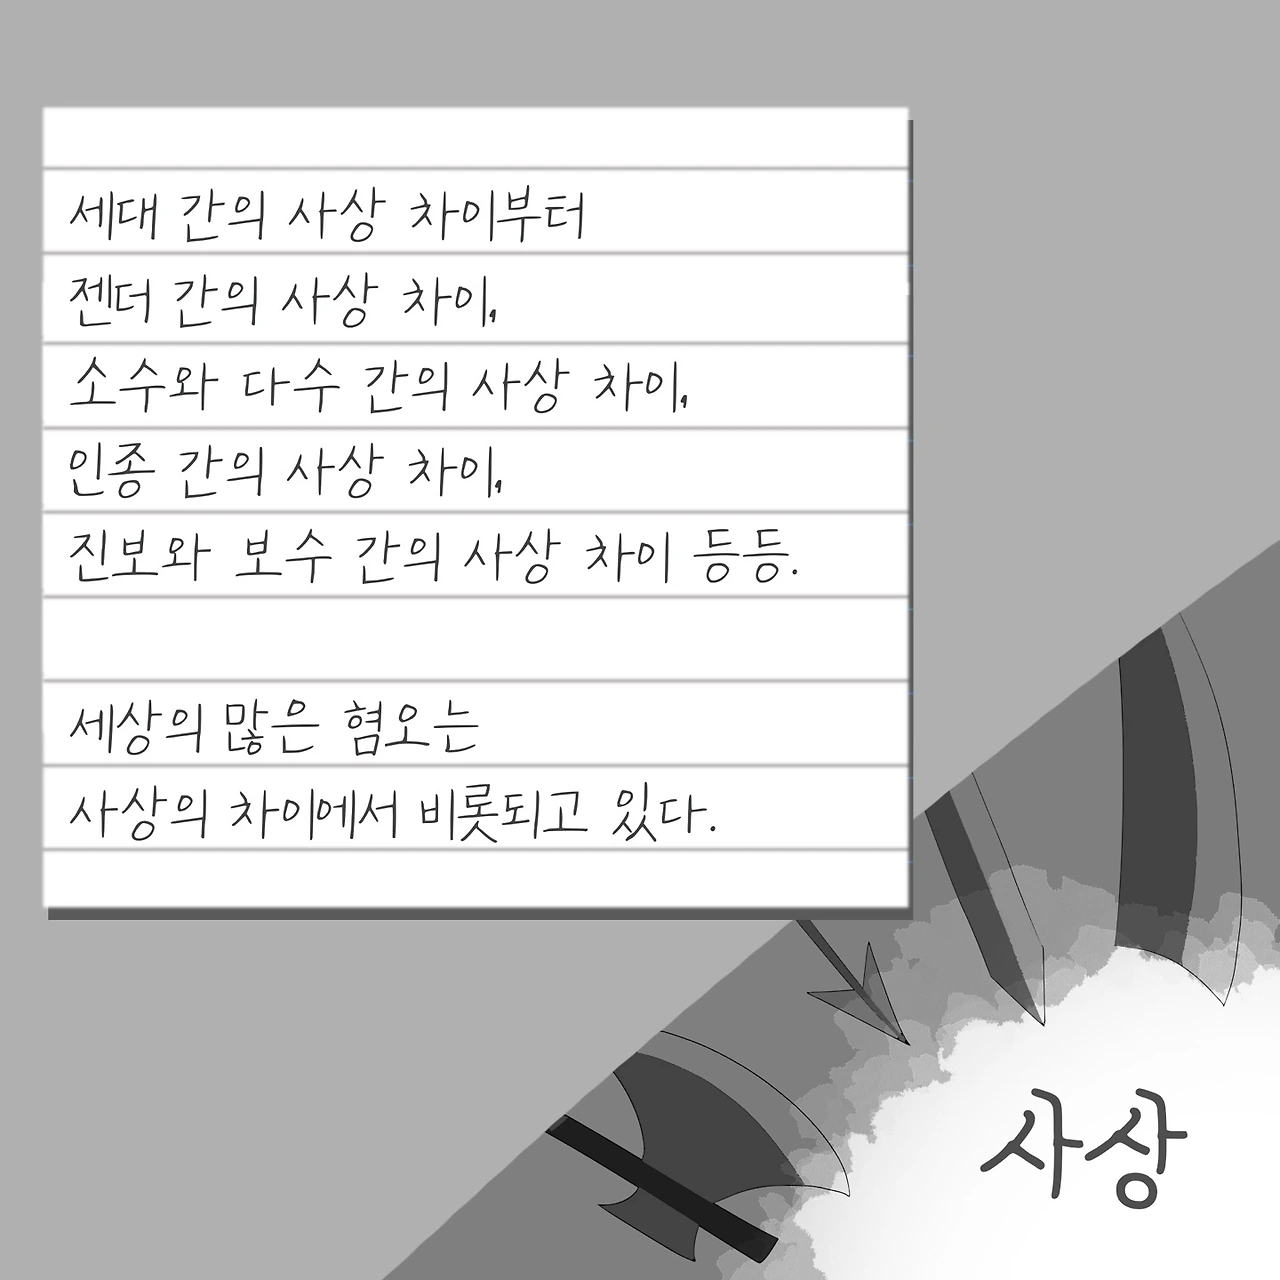 세대 간의 사상 차이부터
젠더 간의 사상 차이,
소수와 다수 간의 사상 차이,
인종 간의 사상 차이,
진보와 보수 간의 사상 차이 등등.
세상의 많은 혐오는
사상의 차이에서 비롯되고 있다.
사상